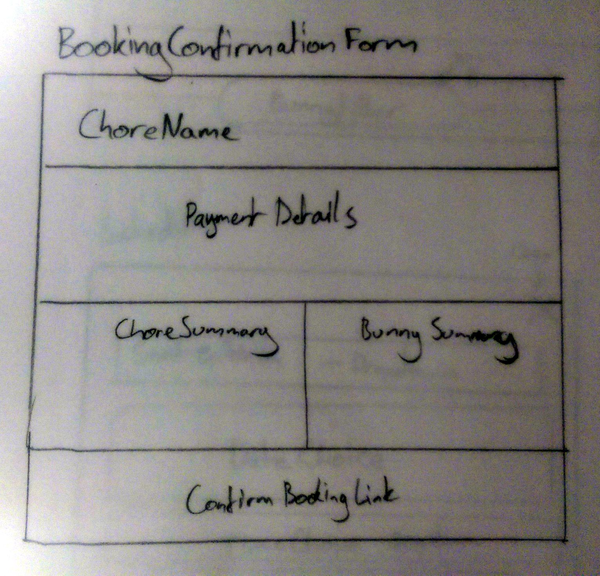 Booking Confirmation Form
ChoreName
Payment Details
ChoreSummary
Bunny Summary
Confirm Booking Link